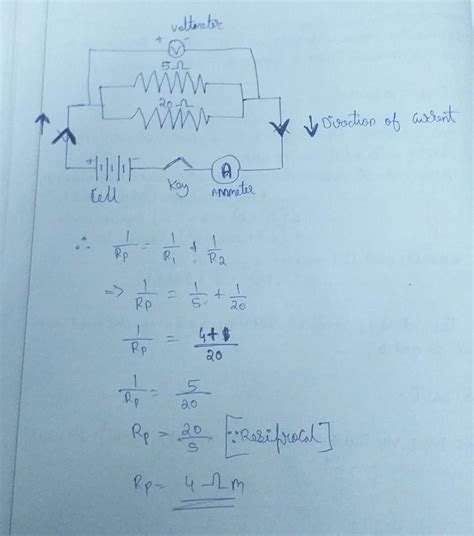 voltmeter
+ V -
5Ω
20Ω
↓ Direction of current
+ -
Cell
Key
A
Ammeter
∴ 1/Rp = 1/R1 + 1/R2
=> 1/Rp = 1/5 + 1/20
1/Rp = 4+1/20
1/Rp = 5/20
Rp = 20/5 [∵ Resifrocal]
Rp = 4 Ω m